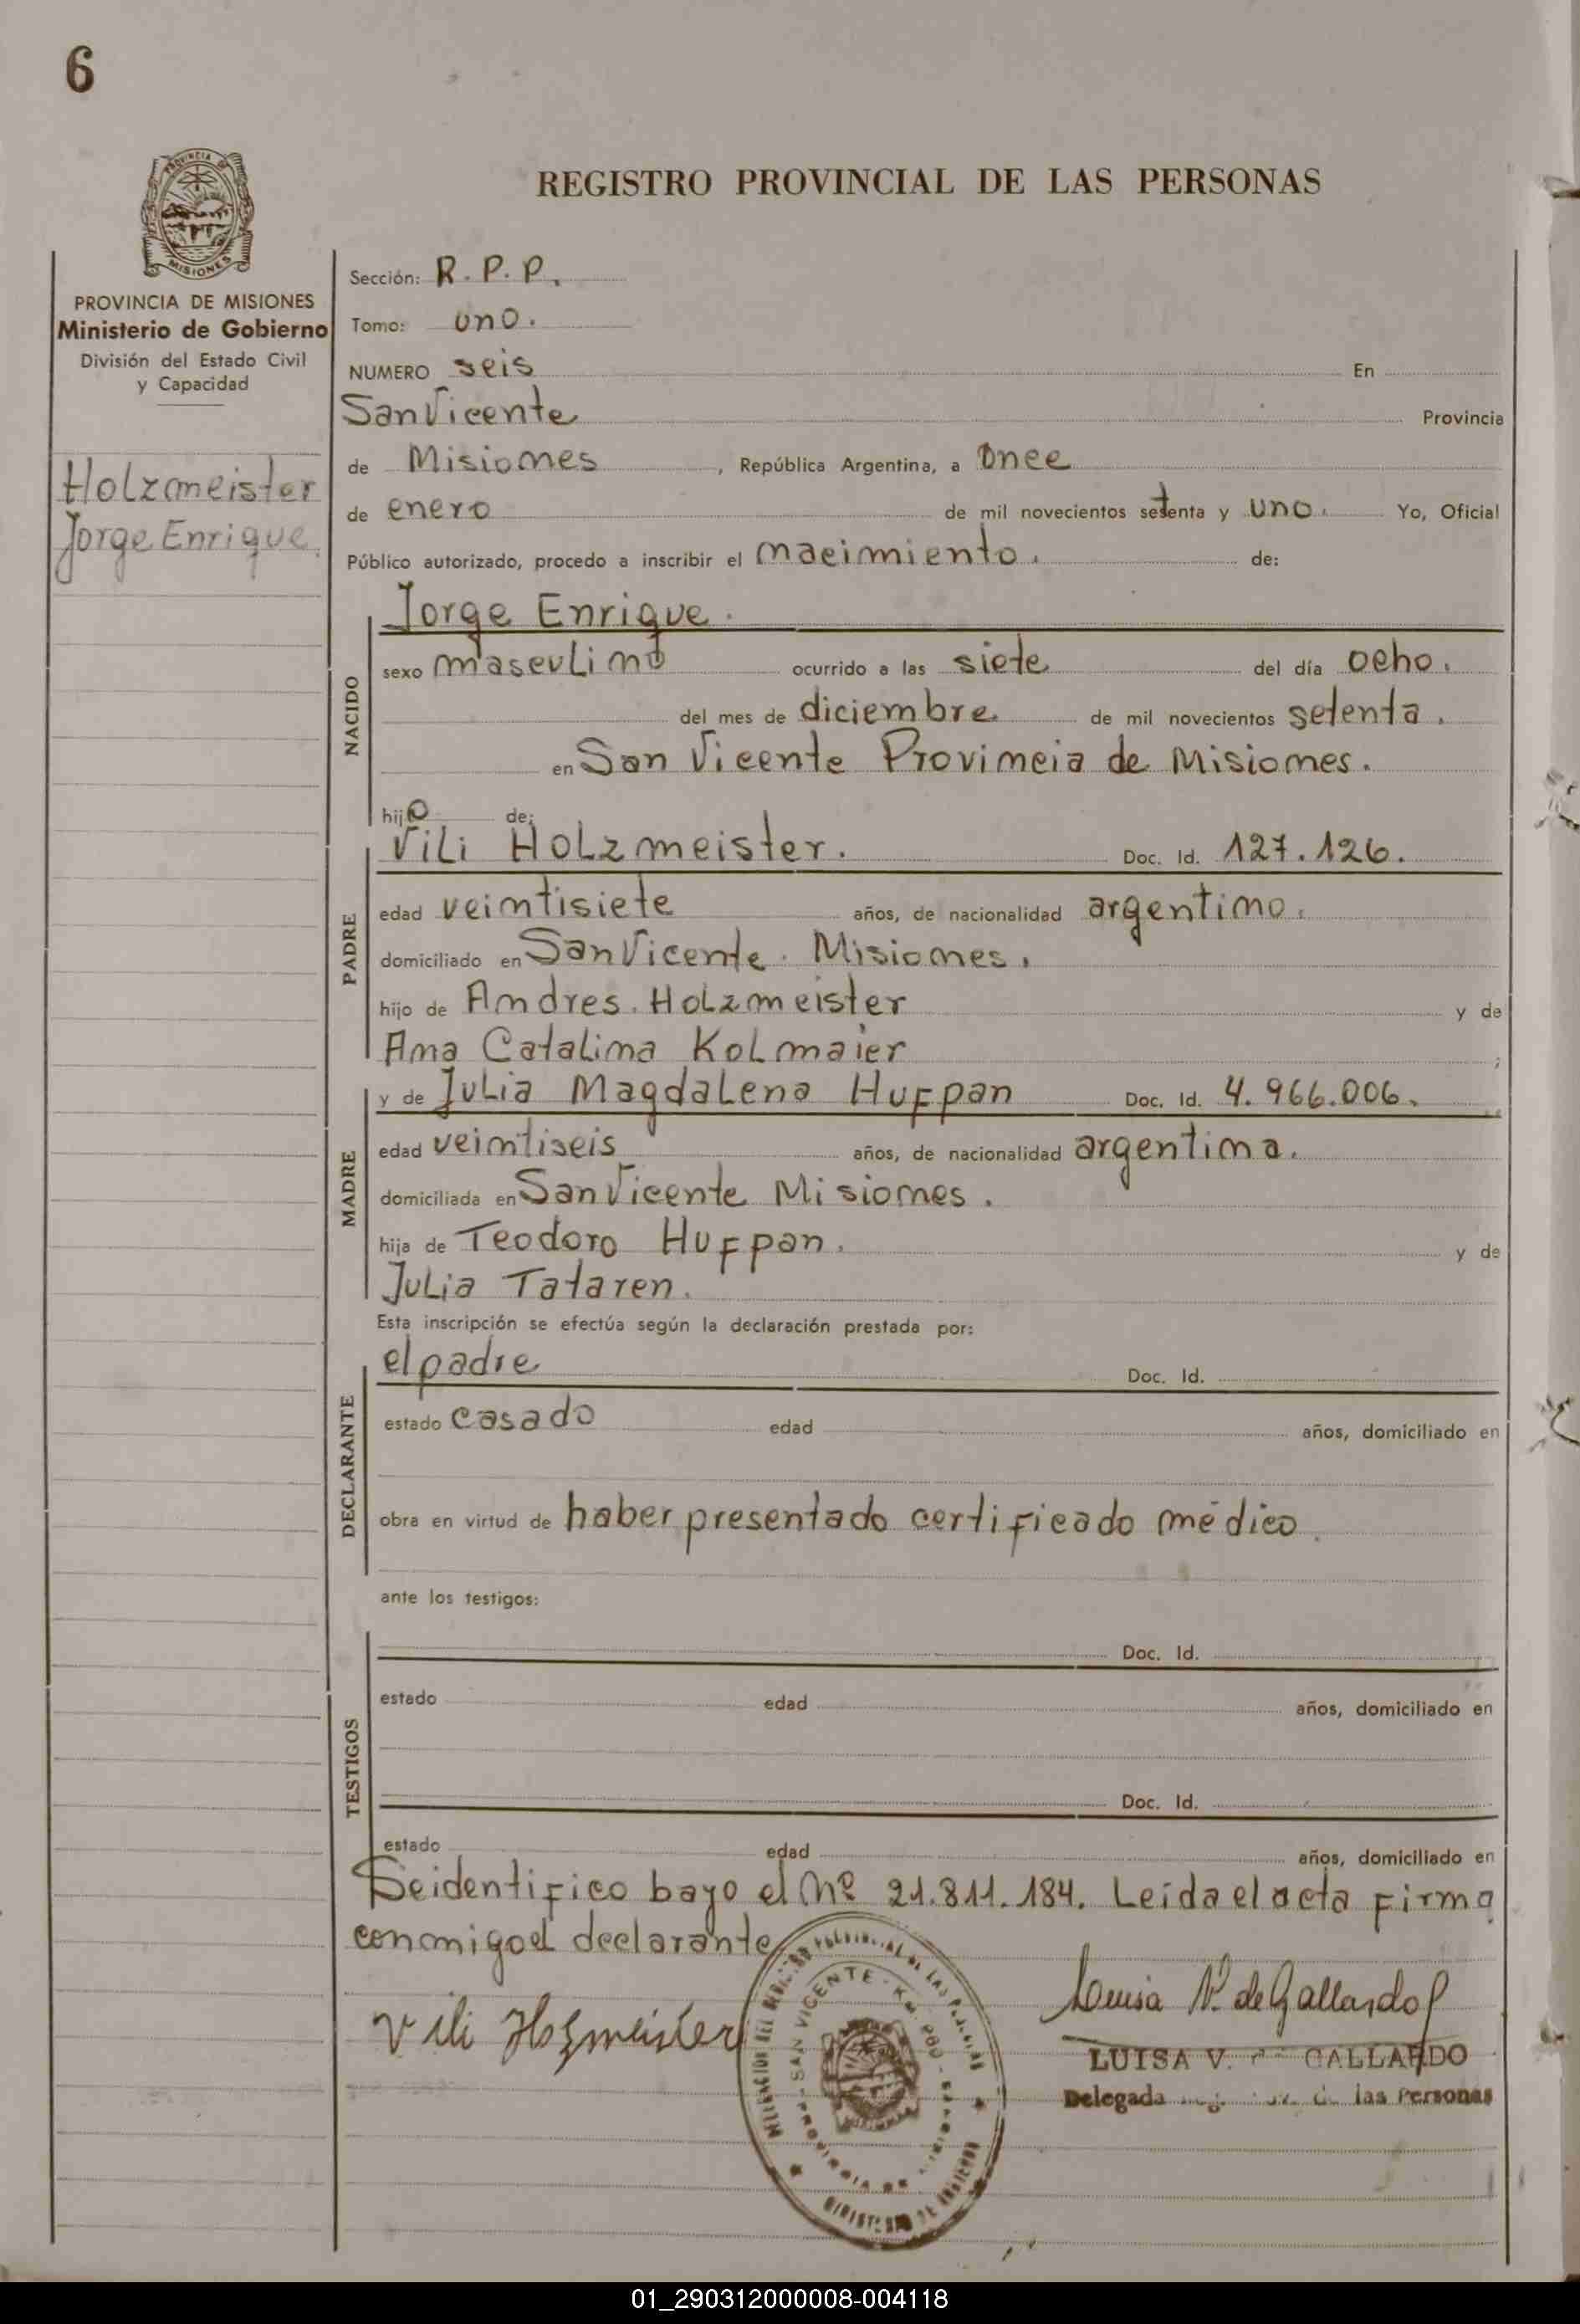 6
PROVINCIA DE MISIONES
Ministerio de Gobierno
División del Estado Civil
y Capacidad
Holzmeister
Jorge Enrique.
REGISTRO PROVINCIAL DE LAS PERSONAS
Sección: R. P. P.
Tomo: uno.
NUMERO seis En
San Vicente Provincia
de Misiones, República Argentina, a Once
de enero de mil novecientos setenta y uno. Yo, Oficial
Público autorizado, procedo a inscribir el nacimiento. de:
NACIDO
Jorge Enrique.
sexo masculino ocurrido a las siete del día ocho.
del mes de diciembre de mil novecientos setenta.
en San Vicente Provincia de Misiones.
hijo de:
PADRE
Vili Holzmeister. Doc. Id. 127.126.
edad veintisiete años, de nacionalidad argentino.
domiciliado en San Vicente. Misiones.
hijo de Andres. Holzmeister y de
Ana Catalina Kolmaier ;
MADRE
y de Julia Magdalena Hufpan Doc. Id. 4.966.006.
edad veintiseis años, de nacionalidad argentina.
domiciliada en San Vicente Misiones.
hija de Teodoro Hufpan. y de
Julia Tataren.
Esta inscripción se efectúa según la declaración prestada por:
DECLARANTE
el padre Doc. Id.
estado casado edad años, domiciliado en
obra en virtud de haber presentado certificado médico.
ante los testigos:
TESTIGOS
Doc. Id.
estado edad años, domiciliado en
Doc. Id.
estado edad años, domiciliado en
Se identifico bayo el Nº 21.811.184. Leida el acta firma
conmigo el declarante
Vili Holzmeister
SAN VICENTE
Luisa V. de Gallardo
LUISA V. GALLARDO
Delegada de las Personas
01_290312000008-004118